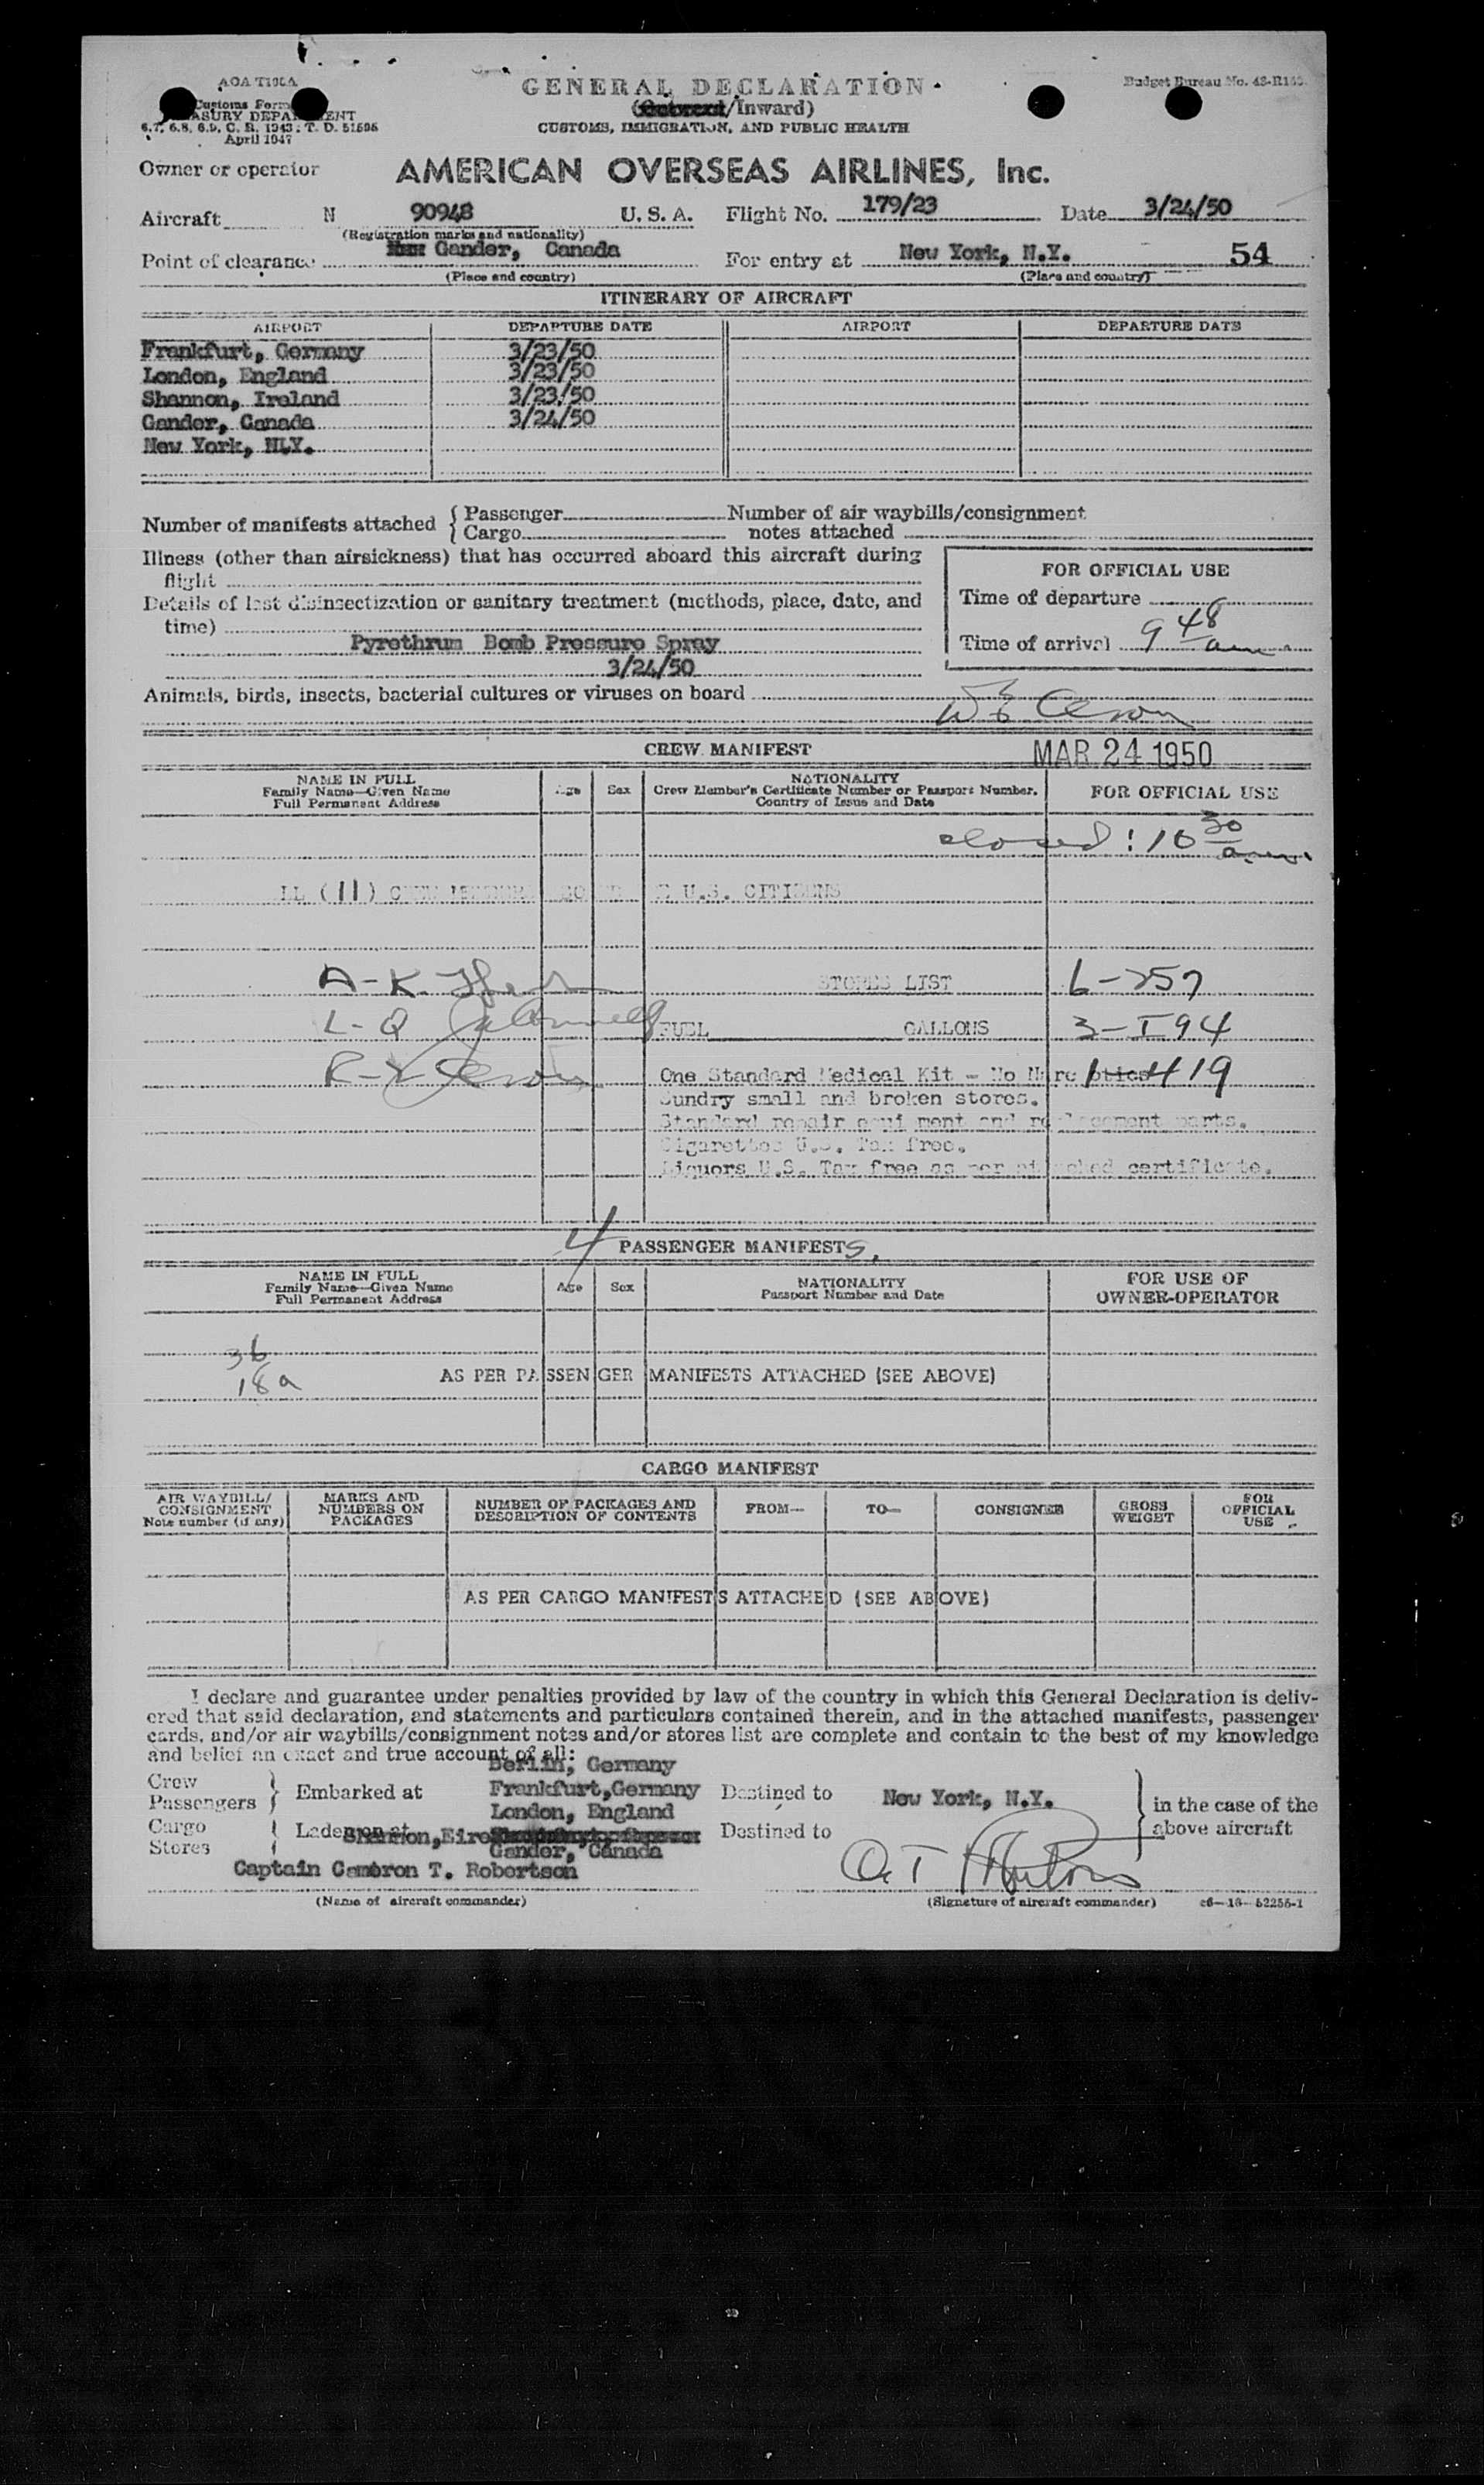 AOA T100A
GENERAL DECLARATION
Budget Bureau No. 48-R
Customs Form
(/Inward)
6.7, 6.8, 6.9, C. R. 1943; T. D. 51595
CUSTOMS, IMMIGRATION, AND PUBLIC HEALTH
April 1947
Owner or operator AMERICAN OVERSEAS AIRLINES, Inc.
Aircraft N 90948 U. S. A. Flight No. 179/23 Date 3/24/50
(Registration marks and nationality)
Point of clearance Gander, Canada For entry at New York, N.Y. 54
(Place and country) (Place and country)
ITINERARY OF AIRCRAFT
AIRPORT DEPARTURE DATE AIRPORT DEPARTURE DATE
Frankfurt, Germany 3/23/50
London, England 3/23/50
Shannon, Ireland 3/23/50
Gander, Canada 3/24/50
New York, NLY.
Number of manifests attached { Passenger Number of air waybills/consignment
{ Cargo notes attached
Illness (other than airsickness) that has occurred aboard this aircraft during
flight
FOR OFFICIAL USE
Details of last disinsectization or sanitary treatment (methods, place, date, and
time)
Time of departure
Pyrethrum Bomb Pressure Spray
Time of arrival 9 48 am
3/24/50
Animals, birds, insects, bacterial cultures or viruses on board
W E
CREW MANIFEST
MAR 24 1950
NAME IN FULL
Family Name—Given Name
Full Permanent Address
Age Sex
NATIONALITY
Crew Member's Certificate Number or Passport Number.
Country of Issue and Date
FOR OFFICIAL USE
closed! 10 30 a.m.
LL (11) CREW MEMBERS U.S. CITIZENS
A-K
STORES LIST 6-257
L-Q
FUEL GALLONS 3-I94
R-Z
One Standard Medical Kit - No Narcotics 1-I419
Sundry small and broken stores.
Standard repair equipment and replacement parts.
Cigarettes U.S. Tax free.
Liquors U.S. Tax free as per attached certificate.
4 PASSENGER MANIFESTS.
NAME IN FULL
Family Name—Given Name
Full Permanent Address
Age Sex
NATIONALITY
Passport Number and Date
FOR USE OF
OWNER-OPERATOR
36
18a
AS PER PASSENGER MANIFESTS ATTACHED (SEE ABOVE)
CARGO MANIFEST
AIR WAYBILL/
CONSIGNMENT
Note number (if any)
MARKS AND
NUMBERS ON
PACKAGES
NUMBER OF PACKAGES AND
DESCRIPTION OF CONTENTS
FROM— TO— CONSIGNEE
GROSS
WEIGHT
FOR
OFFICIAL
USE
AS PER CARGO MANIFESTS ATTACHED (SEE ABOVE)
I declare and guarantee under penalties provided by law of the country in which this General Declaration is deliv-
ered that said declaration, and statements and particulars contained therein, and in the attached manifests, passenger
cards, and/or air waybills/consignment notes and/or stores list are complete and contain to the best of my knowledge
and belief an exact and true account of all:
Berlin, Germany
Crew
Passengers } Embarked at Frankfurt,Germany Destined to New York, N.Y. } in the case of the
London, England
Cargo
Stores } Laden on at Shannon,Eire Destined to above aircraft
Gander, Canada
Captain Cameron T. Robertson
(Name of aircraft commander) (Signature of aircraft commander) c6—16—52255-1